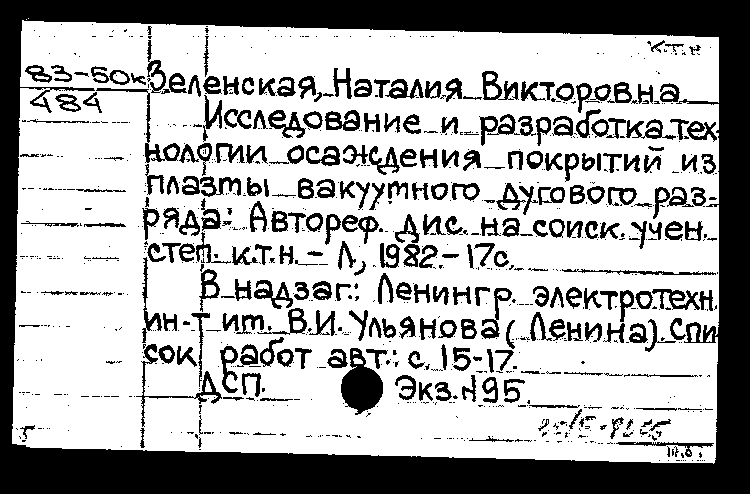 к.т.н
83-50к Зеленская, Наталия Викторовна.
484 Исследование и разработка тех-
нологии осаждения покрытий из
плазмы вакуумного дугового раз-
ряда: Автореф. дис. на соиск. учен.
степ. к.т.н. - Л., 1982.-17с.
В надзаг.: Ленингр. электротехн.
ин-т им. В.И. Ульянова (Ленина). Спи
сок работ авт.: с. 15-17.
ДСП. Экз. №95.
5